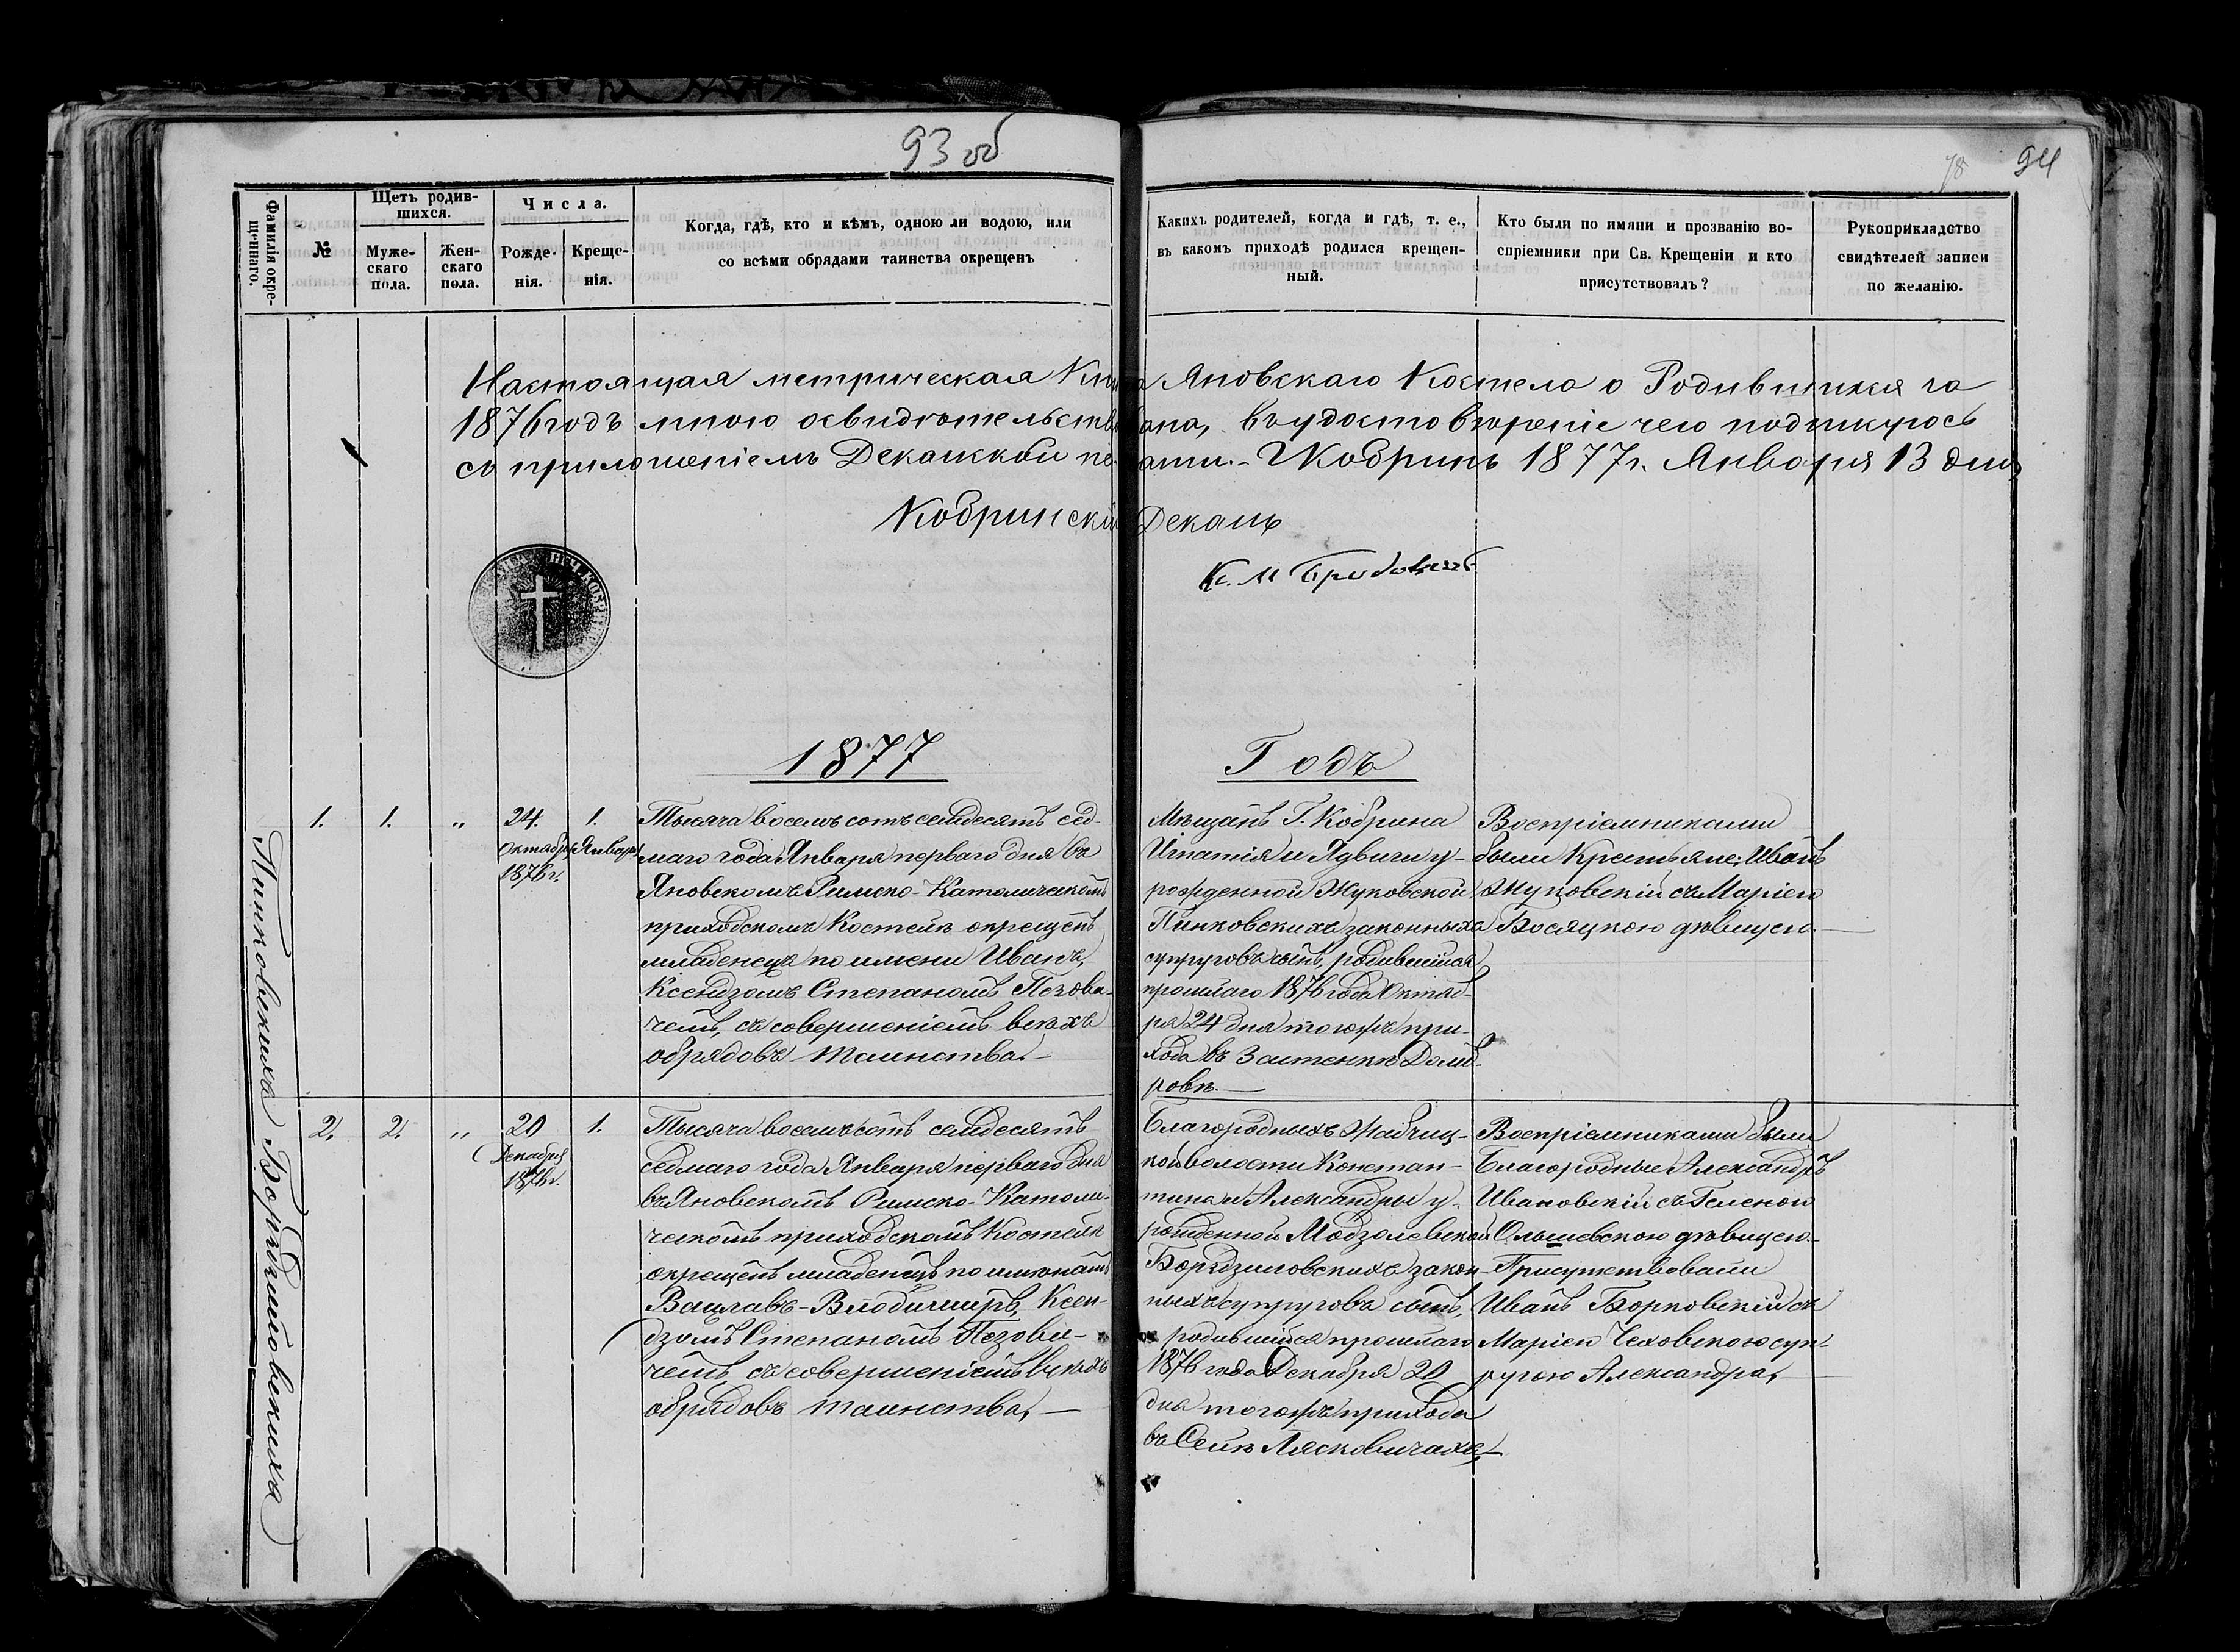 93 об
78 94
Фамилія окре-
щеннаго.
№
Щетъ родив-
шихся.
Муже-
скаго
пола.
Жен-
скаго
пола.
Числа.
Рожде-
нія.
Креще-
нія.
Когда, гдѣ, кто и кѣмъ, одною ли водою, или
со всѣми обрядами таинства окрещенъ
Какихъ родителей, когда и гдѣ, т. е.,
въ какомъ приходѣ родился крещен-
ный.
Кто были по имяни и прозванію во-
спріемники при Св. Крещеніи и кто
присутствовалъ?
Рукоприкладство
свидѣтелей записи
по желанію.
Настоящая метрическая Книга Яновскаго Костела о Родившихся за
1876 годъ мною освидѣтельствована, въ удостовѣреніе чего подпишусь
съ приложеніемъ Деканской печати. - Г Кобринъ 1877 г. Января 13 дня
Кобринскій Деканъ
Кс. М
1877 Годъ
Пинковскихъ
1. 1. „ 24. 1.
Октября Января
1876 г.
Тысяча восемь сотъ семдесятъ сед-
маго года Января перваго дня въ
Яновскомъ Римско-Католическомъ
приходскомъ Костелѣ окрещенъ
младенецъ по имени Иванъ,
Ксендзомъ Степаномъ Позови-
чемъ, съ совершеніемъ всѣхъ
обрядовъ таинства. —
Мѣщанъ Г. Кобрина
Игнатія и Ядвиги у-
рожденной Жуковской
Пинковскихъ законныхъ
супруговъ сынъ, родившійся
прошлаго 1876 года Октяб-
ря 24 дня тогожъ при-
хода въ Застенкѣ Домб-
ровѣ. —
Воспріемниками
были Крестьяне: Иванъ
Жуковскій съ Маріею
Босяцкою дѣвицею. —
Бортиловскихъ
2. 2. „ 20 1.
Декабря
1876 г.
Тысяча восемьсотъ семдесятъ
седмаго года Января перваго дня
въ Яновскомъ Римско-Католи-
ческомъ приходскомъ Костелѣ
окрещенъ младенецъ по именамъ
Вацлавъ-Влодимиръ, Ксен-
дзомъ Степаномъ Позови-
чемъ, съ совершеніемъ всѣхъ
обрядовъ таинства, —
Благородныхъ
кой волости Констан-
тина и Александры у-
рожденной Модзолевской
законныхъ супруговъ сынъ,
родившійся прошлаго
1876 года Декабря 20
дня тогожъ прихода
въ Селѣ Лясковичахъ, —
Воспріемниками были
Благородные Александръ
Ивановскій съ Геленою
Ольшевскою дѣвицею. -
Присутствовали
Иванъ Борковскій съ
Маріею Чеховскою суп-
ругою Александра, —